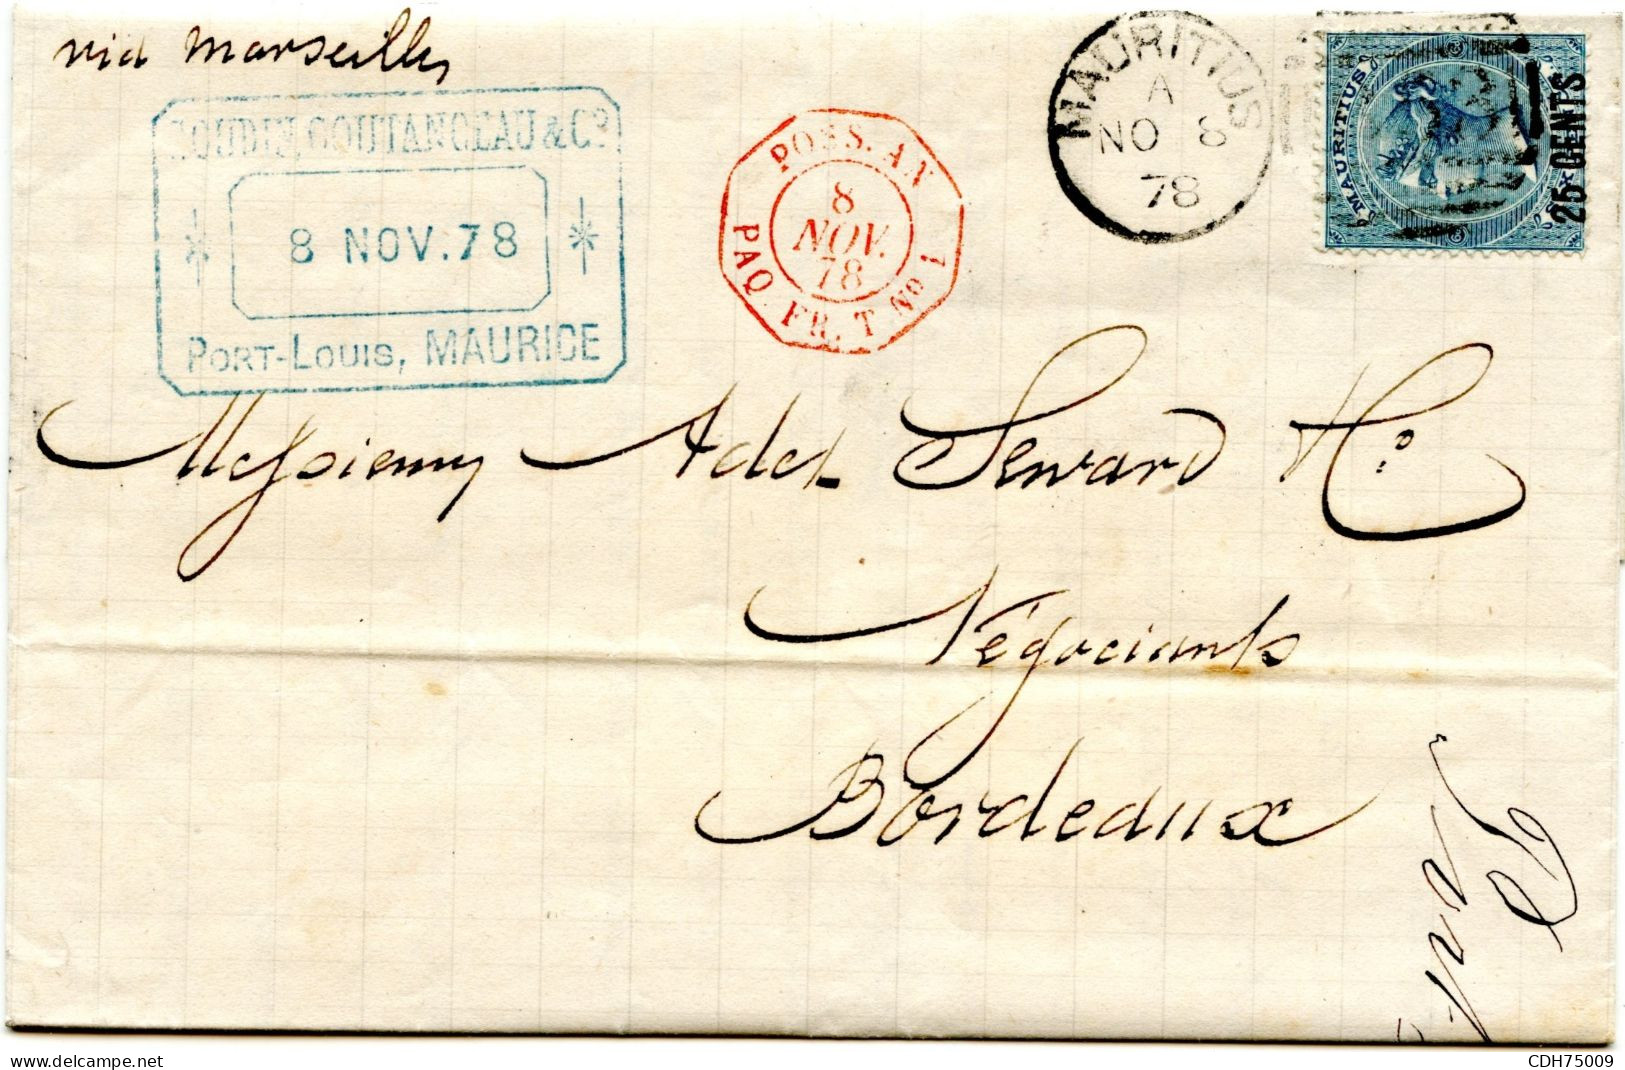 via Marseilles
GOUDIN, COUTANCEAU & Cº
8 NOV. 78
PORT-LOUIS, MAURICE
POSS. AN
8
NOV.
78
PAQ. FR. T Nº 1
MAURITIUS
A
NO 8
78
MAURITIUS
25 CENTS
SIX
Messieurs Adet Seward & Cº
Négociants
Bordeaux
www.delcampe.net
CDH75009